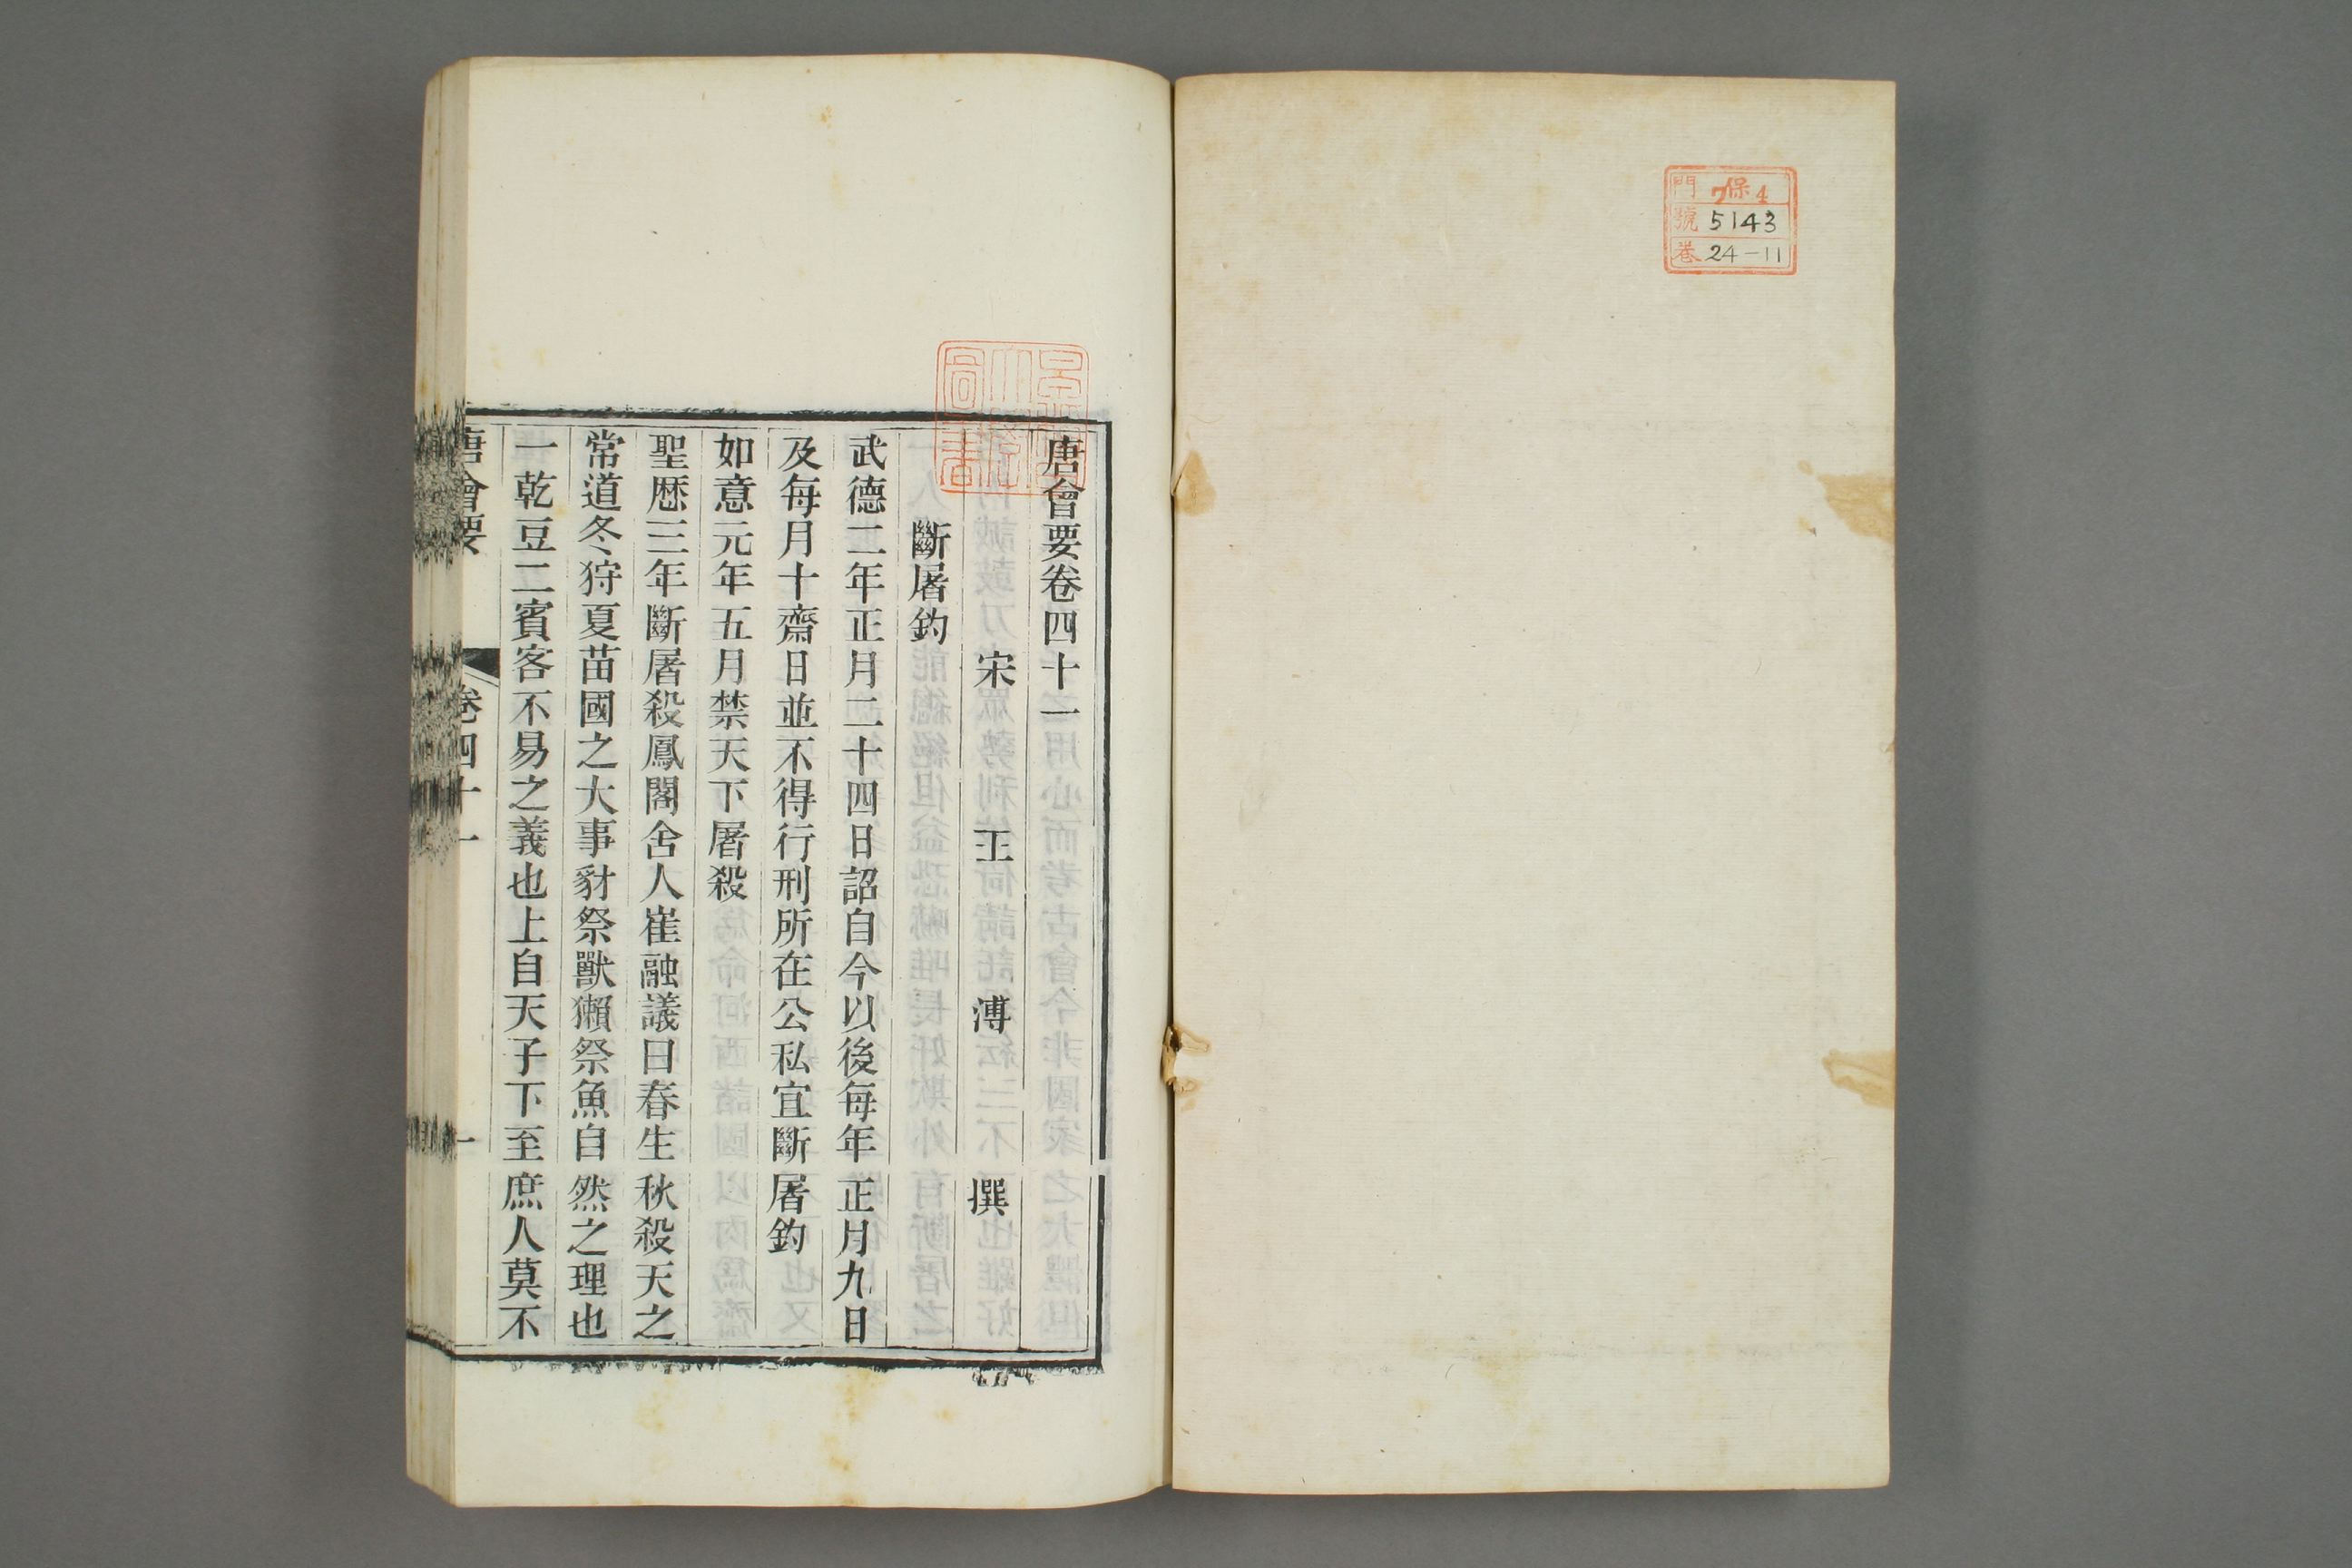 門 7保4
號 5143
卷 24-11
唐會要卷四十一
宋 王 溥 撰
斷屠釣
武德二年正月二十四日詔自今以後每年正月九日
及每月十齋日並不得行刑所在公私宜斷屠釣
如意元年五月禁天下屠殺
聖歷三年斷屠殺鳳閣舍人崔融議曰春生秋殺天之
常道冬狩夏苗國之大事豺祭獸獺祭魚自然之理也
一乾豆二賓客不易之義也上自天子下至庶人莫不
唐會要 卷四十一 一